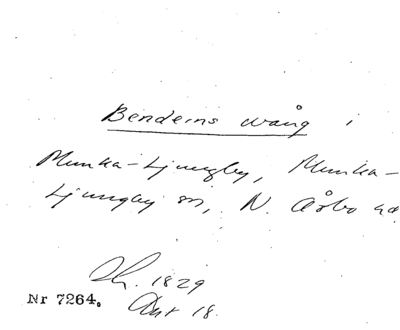 Benderns vång i
Munka-Ljungby, Munka-
Ljungby sn, N. Åsbo hd.
Sk. 1829
Nr 7264. Akt 18.